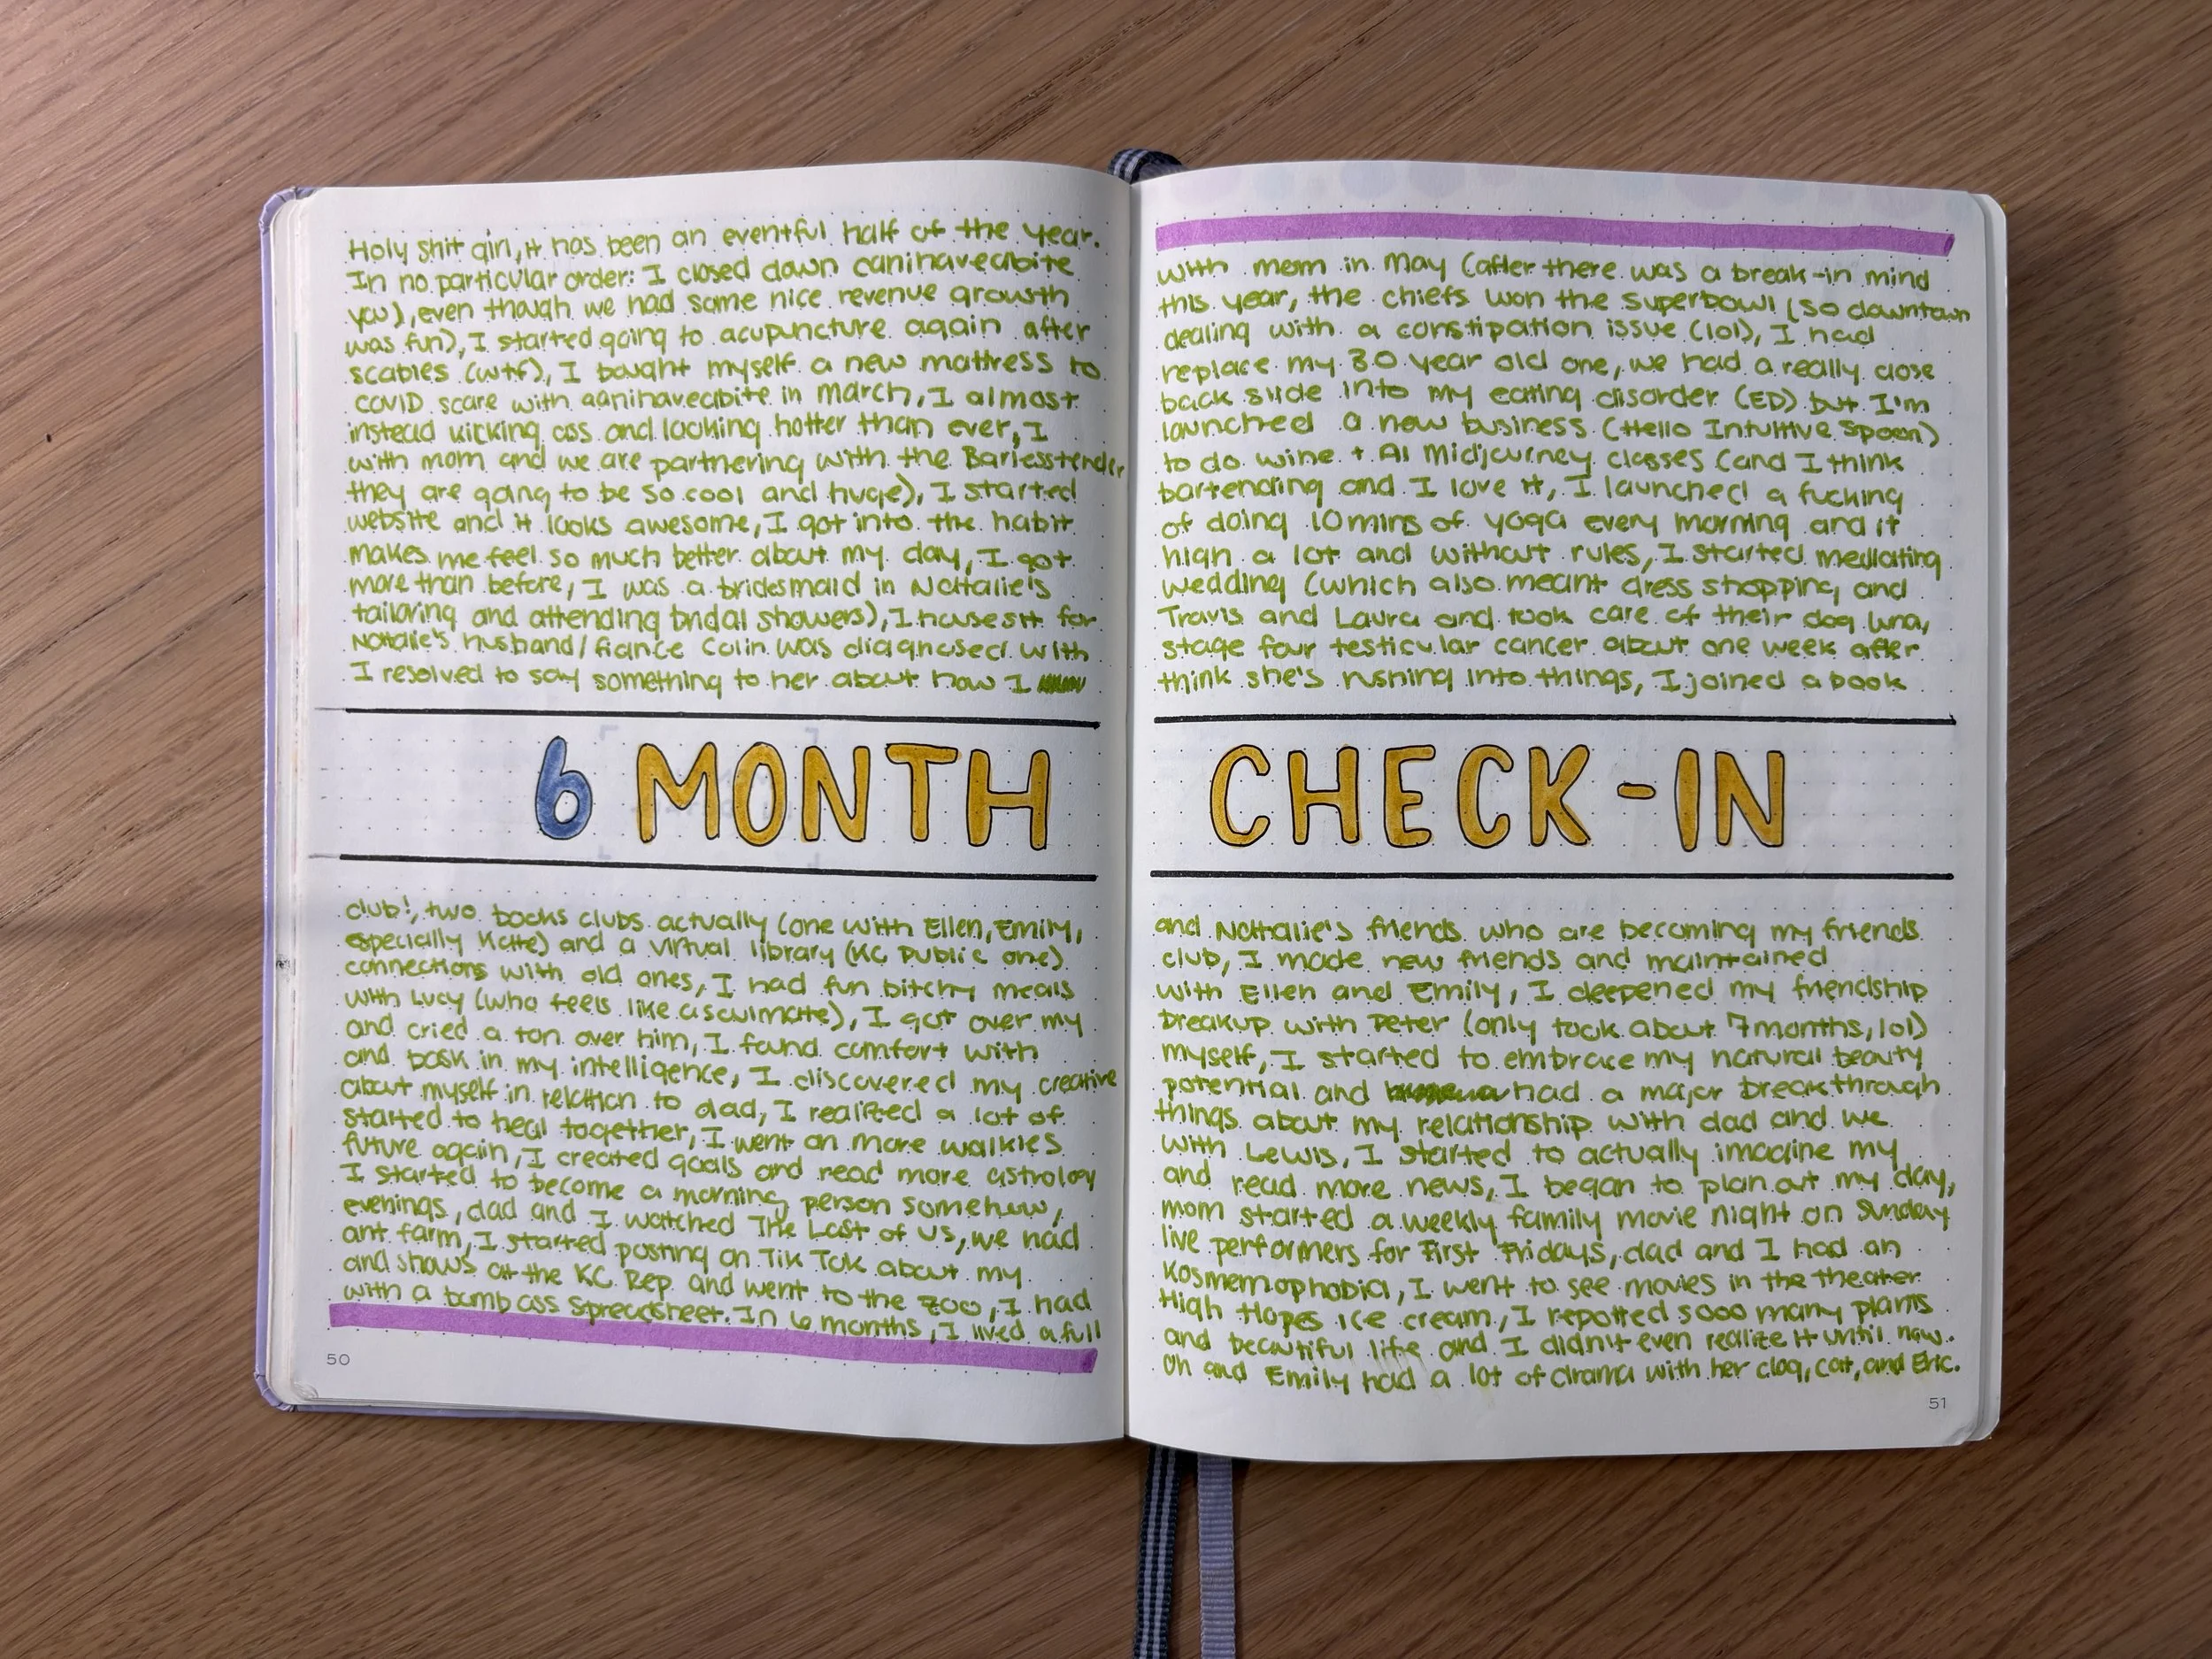 Holy shit girl, it has been an eventful half of the year.
In no particular order: I closed down canihaveabite
with mom in May (after there was a break-in mind
you), even though we had some nice revenue growth
this year, the chiefs won the superbowl (so downtown
was fun), I started going to acupuncture again after
dealing with a constipation issue (lol), I had
scabies (wtf), I bought myself a new mattress to
replace my 30 year old one, we had a really close
COVID scare with canihaveabite in march, I almost
back slide into my eating disorder (ED) but I'm
instead kicking ass and looking hotter than ever, I
launched a new business (Hello Intuitive Spoon)
with mom and we are partnering with the Barlesstender
to do wine + AI Midjourney classes (and I think
they are going to be so cool and huge), I started
bartending and I love it, I launched a fucking
website and it looks awesome, I got into the habit
of doing 10 mins of yoga every morning and it
makes me feel so much better about my day, I got
high a lot and without rules, I started mediating
more than before, I was a bridesmaid in Nathalie's
wedding (which also meant dress shopping, and
tailoring and attending bridal showers), I housesit for
Travis and Laura and took care of their dog Luna,
Nathalie's husband/fiance Colin was diagnosed with
stage four testicular cancer about one week after
I resolved to say something to her about how I
think she's rushing into things, I joined a book
6 MONTH CHECK-IN
club!, two books clubs actually (one with Ellen, Emily,
and Nathalie's friends who are becoming my friends
especially Kate) and a virtual library (KC Public one)
club, I made new friends and maintained
connections with old ones, I had fun bitchy meals
with Ellen and Emily, I deepened my friendship
with Lucy (who feels like a soulmate), I got over my
breakup with Peter (only took about 7 months, lol)
and cried a ton over him, I found comfort with
myself, I started to embrace my natural beauty
and bask in my intelligence, I discovered my creative
potential and had a major breakthrough
about myself in relation to dad, I realized a lot of
things about my relationship with dad and we
started to heal together, I went on more walkies
with Lewis, I started to actually imagine my
future again, I created goals and read more astrology
and read more news, I began to plan out my day,
I started to become a morning person somehow,
mom started a weekly family movie night on Sunday
evenings, dad and I watched The Last of Us, we had
live performers for First Fridays, dad and I had an
ant farm, I started posting on Tik Tok about my
Kosmemophobia, I went to see movies in the theater
and shows at the KC Rep and went to the zoo, I had
High Hopes ice cream, I repotted sooo many plants
with a bomb ass spreadsheet. In 6 months, I lived a full
and beautiful life and I didn't even realize it until now.
Oh and Emily had a lot of drama with her dog, cat, and Eric.
50
51